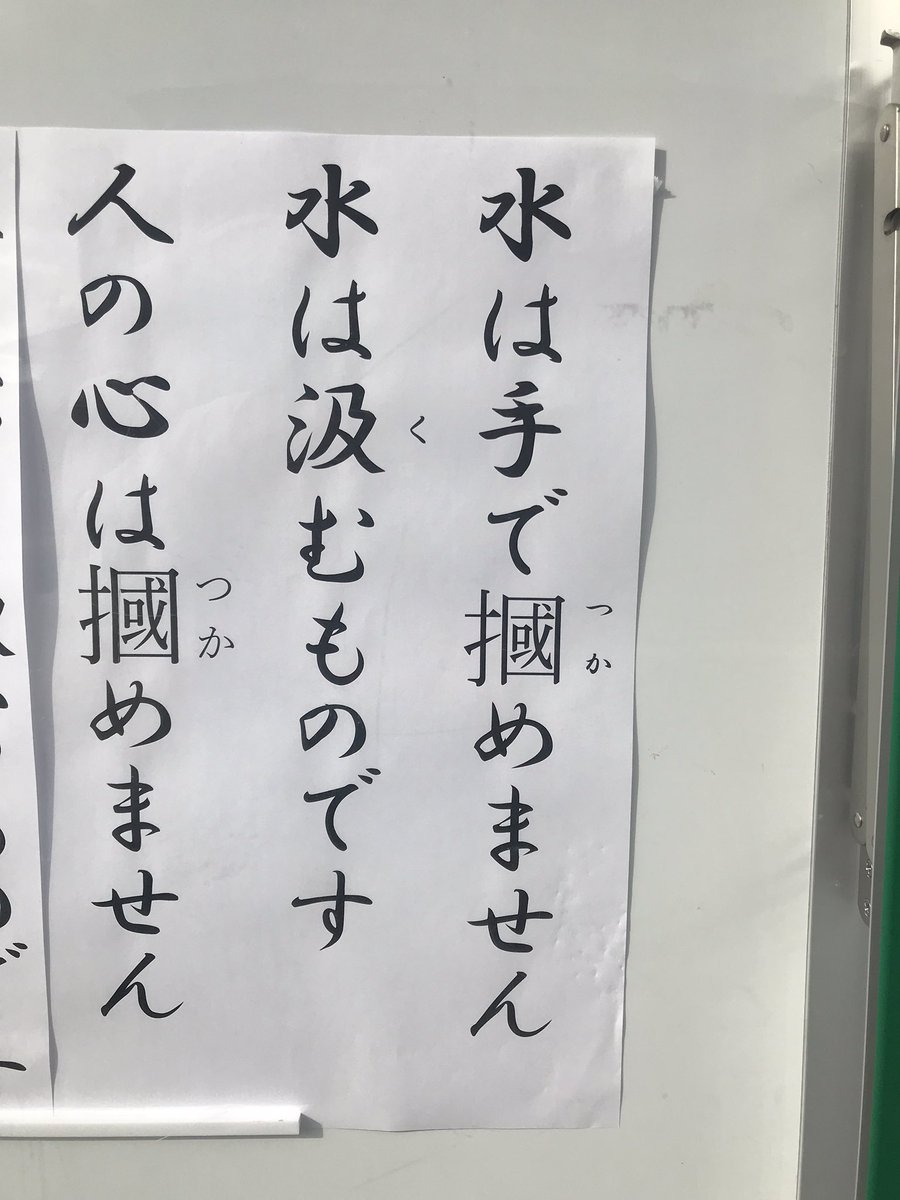 つか
水は手で摑めません
く
水は汲むものです
つか
人の心は摑めません